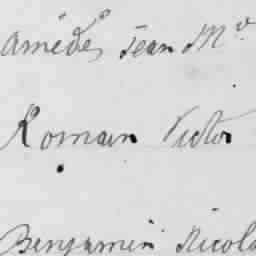 amédé Jean M.e
Romain Victor
Benjamin Nicola